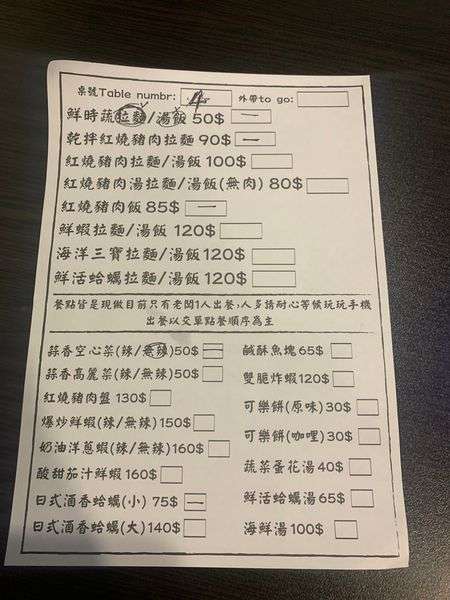 桌號Table numbr: 4 外帶to go:
鮮時蔬拉麵/湯飯 50$ 一
乾拌紅燒豬肉拉麵 90$ 一
紅燒豬肉拉麵/湯飯 100$
紅燒豬肉湯拉麵/湯飯(無肉) 80$
紅燒豬肉飯 85$ 一
鮮蝦拉麵/湯飯 120$
海洋三寶拉麵/湯飯 120$
鮮活蛤蠣拉麵/湯飯 120$
餐點皆是現做目前只有老闆1人出餐,人多請耐心等候玩玩手機
出餐以交單點餐順序為主
蒜香空心菜(辣/無辣)50$ 一
蒜香高麗菜(辣/無辣)50$
紅燒豬肉盤 130$
爆炒鮮蝦(辣/無辣)150$
奶油洋蔥蝦(辣/無辣)160$
酸甜茄汁鮮蝦 160$
日式酒香蛤蠣(小) 75$ 一
日式酒香蛤蠣(大) 140$
鹹酥魚塊 65$
雙脆炸蝦 120$
可樂餅(原味) 30$
可樂餅(咖哩) 30$
蔬菜蛋花湯 40$
鮮活蛤蠣湯 65$
海鮮湯 100$